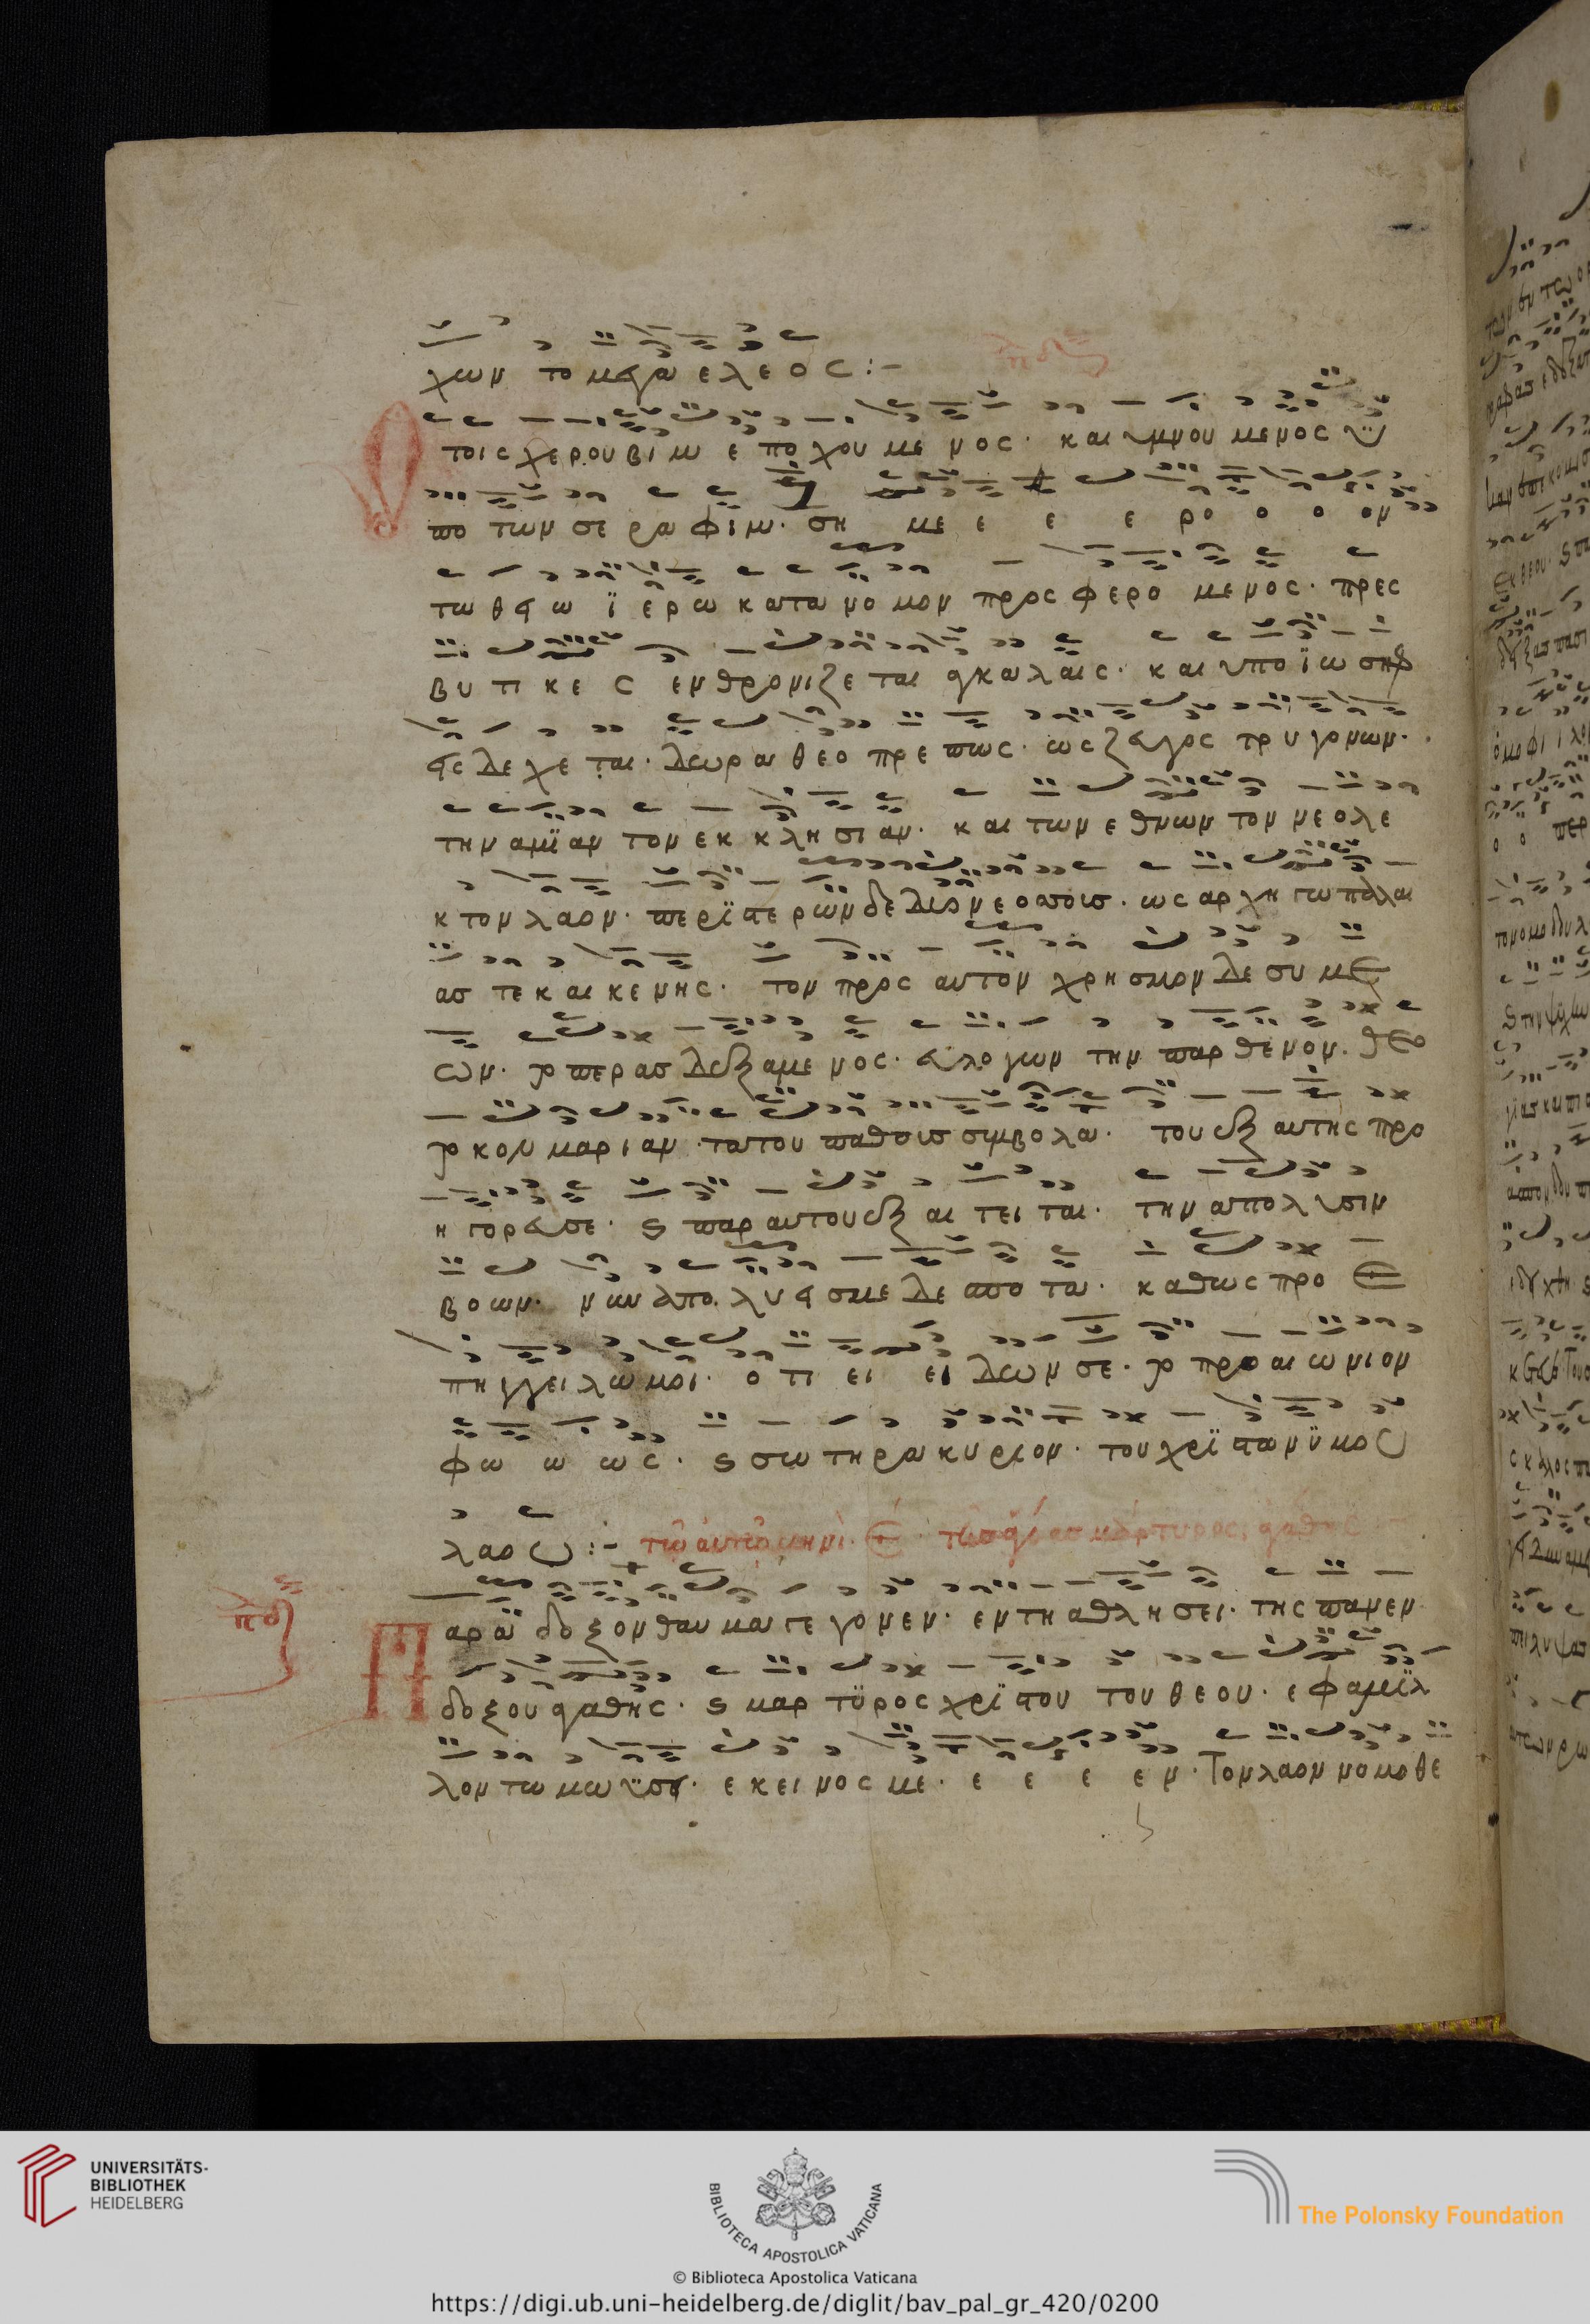 χων το μεγα ελεος :-
Ο τοις χερουβιμ εποχουμενος · και υμνουμενος υ
πο των σεραφιμ · ση με ε ε ε ρο ο ο ον
τω θειω ϊερω κατα νομον προσφερομενος · πρες
βυτικες ενθρονιζεται αγκαλαις · και υπο ϊωσηφ
εισδεχεται · δωρα θεοπρεπως · ως ζευγος τρυγονων ·
την αμιαντον εκκλησιαν · και των εθνων τον νεολε
κτον λαον · περιστερων δε δυο νεοσσοις · ως αρχη
ας τε και κενης · τον προς αυτον χρησμον δε συμε
ων · το περας δεξαμενος · ευλογων την παρθενον · θεο
τοκον μαριαν · τα του παθους συμβολα · του εξ αυτης προ
ηγορευσε · ς παρ αυτου εξαιτειται · την απολυσιν
βοων · νυν απολυεις με δεσποτα · καθως προε
πηγγειλω μοι · οτι ει ειδων σε · το προαιωνιον
φω ω ως · ς σωτηρα κυριον · του χριστωνυμου
λαου :- τω αυτω μηνι · ε · της αγιας μαρτυρος αγαθης
Παραδοξον θαυμα γεγονεν · εν τη αθλησει · της πανεν
δοξου αγαθης · ς μαρτυρος χριστου του θεου · εφαμιλ
λον τω μωυση · εκεινος με · ε ε ε εν · Τον λαον νομοθε
UNIVERSITÄTS-
BIBLIOTHEK
HEIDELBERG
BIBLIOTECA APOSTOLICA VATICANA
The Polonsky Foundation
© Biblioteca Apostolica Vaticana
https://digi.ub.uni-heidelberg.de/diglit/bav_pal_gr_420/0200